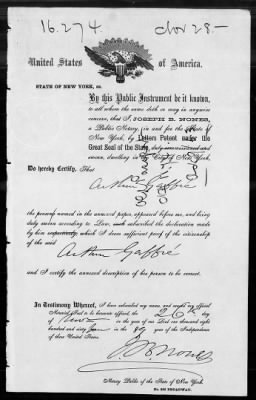 16.274 Nov 28-
United States of America.
STATE OF NEW YORK, ss.
By this Public Instrument be it known,
to all whom the same doth or may in anywise
concern, that I, JOSEPH B. NONES,
a Public Notary, in and for the State of
New York, by Letters Patent under the
Great Seal of the State, duly commissioned and
sworn, dwelling in the City of New York,
Do hereby Certify, That
Arthur Gaffré
the person named in the annexed paper, appeared before me, and being
duly sworn according to Law, subscribed the declaration
made by him respectively, which I deem sufficient proof of the citizenship
of the said
Arthur Gaffré
and I certify the annexed description of his person to be correct.
In Testimony Whereof, I have subscribed my name, and caused my official
Notarial Seal to be hereunto affixed, the 26th day
of in the year of our Lord one thousand eight
hundred and sixty in the 89 year of the Independence
of these United States.
J B Nones
Notary Public of the State of New York.
BROADWAY.